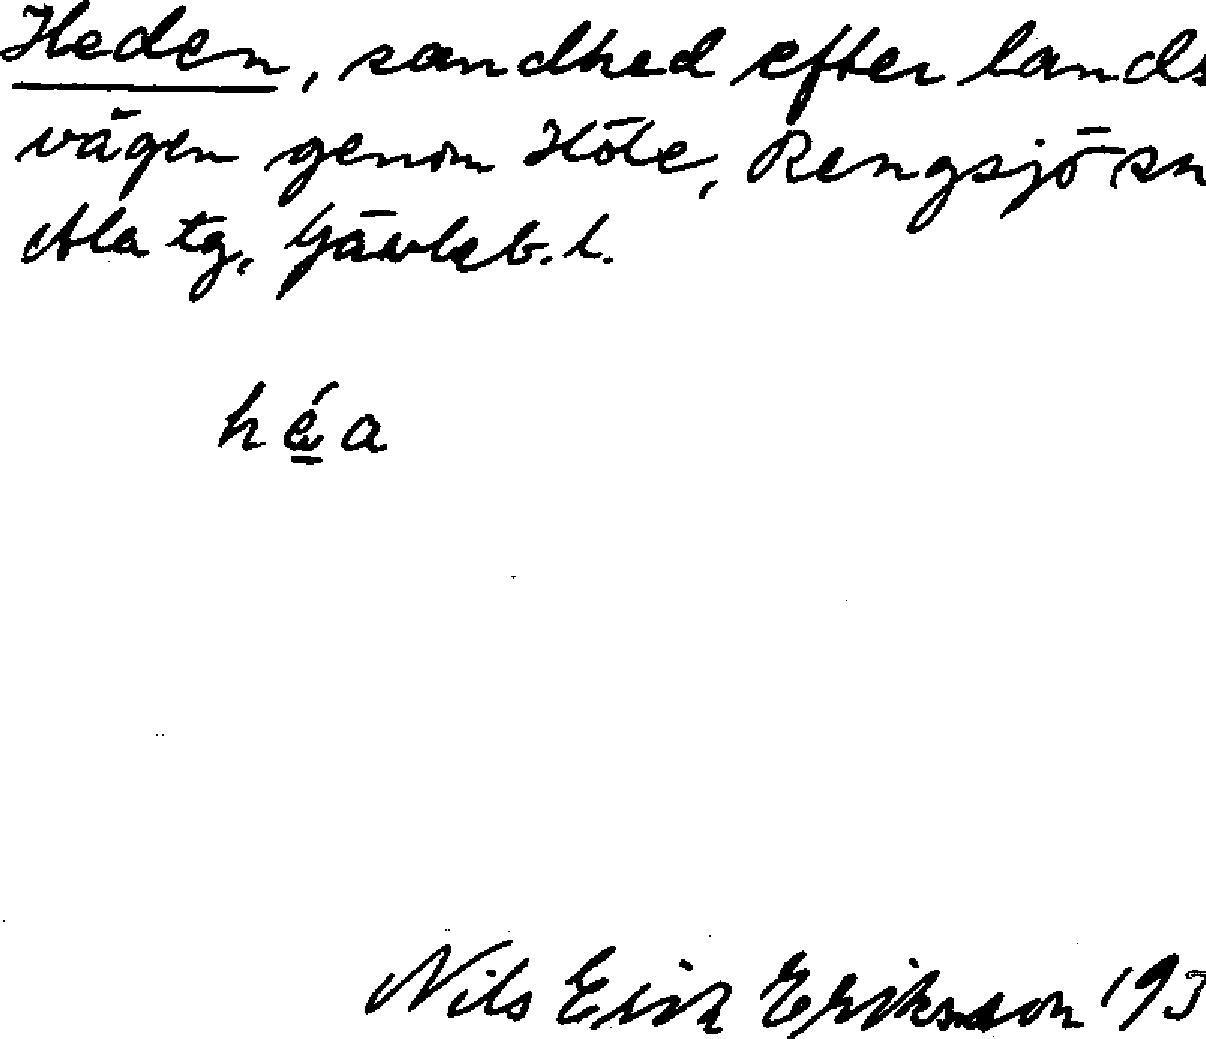 Heden, sandhed efter lands
vägen genom Höle, Rengsjö sn
Ala tg, Gävleb. l.
héa
Nils Erik Eriksson 193